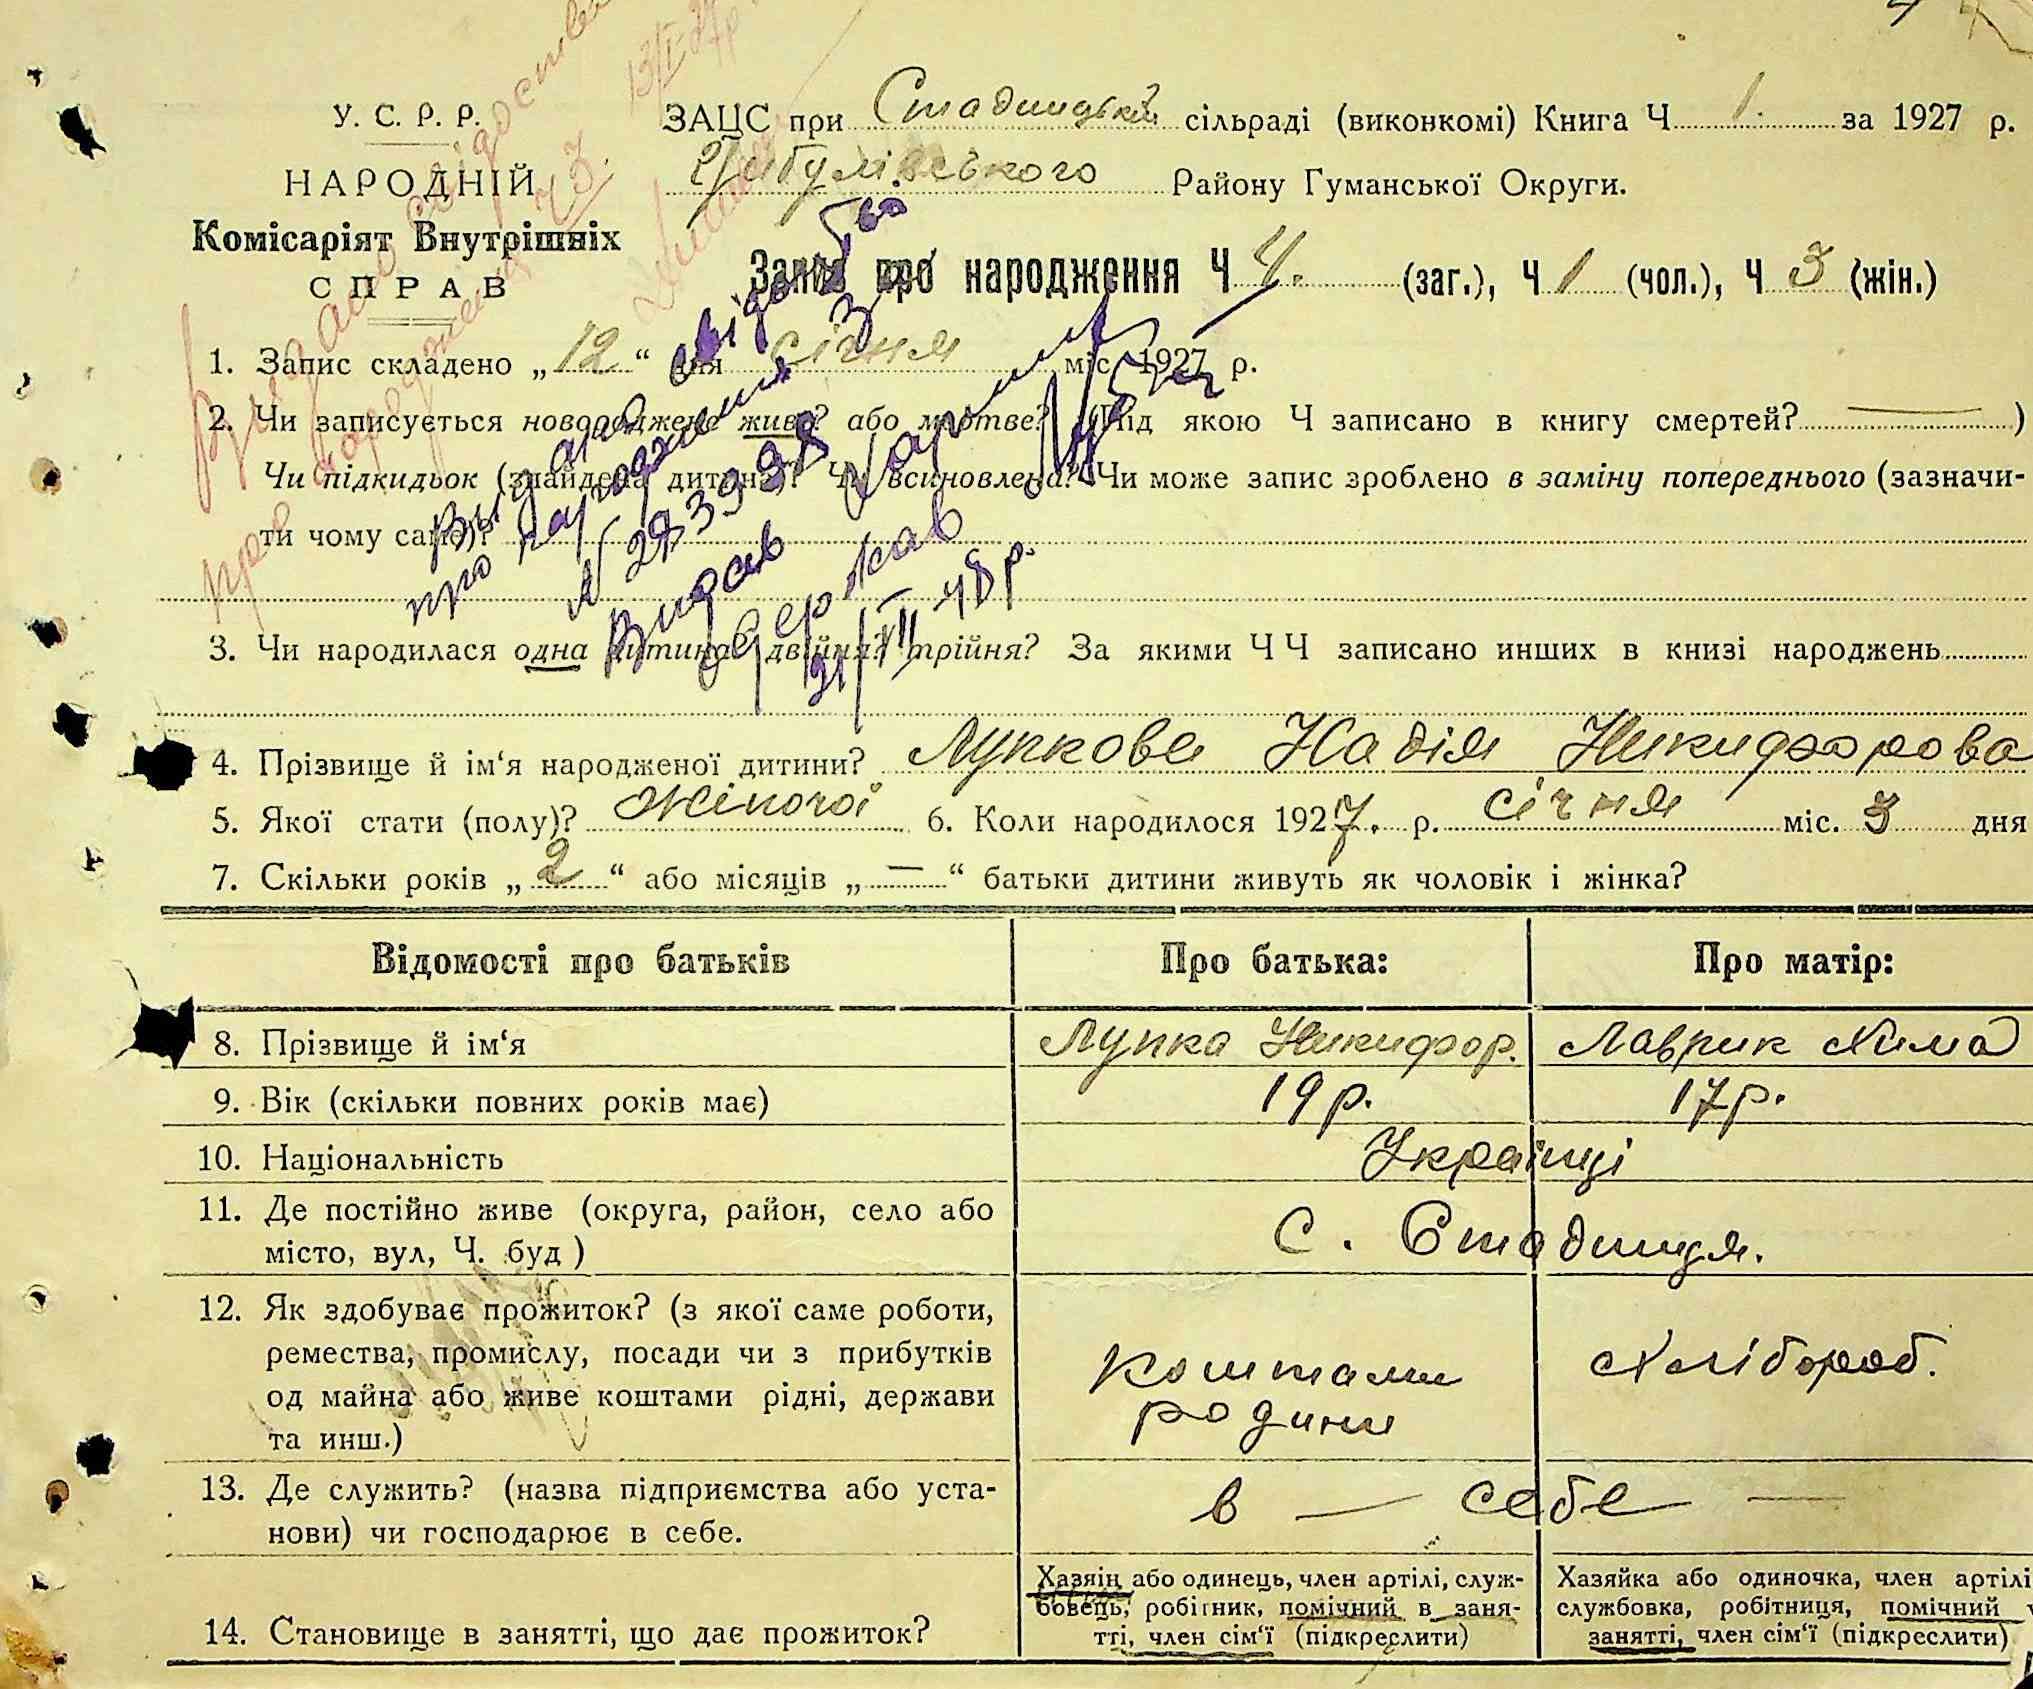 У. С. Р. Р.
НАРОДНІЙ
Комісаріят Внутрішніх
СПРАВ
ЗАЦС при Стадницькій сільраді (виконкомі) Книга Ч 1. за 1927 р.
Цибулівського Району Гуманської Округи.
Запис про народження Ч 4. (заг.), Ч 1 (чол.), Ч 3 (жін.)
13/I-27р.
Видано свідоцтво
про народження Ч 3.
1. Запис складено „12“ дня січня міс. 1927 р.
2. Чи записується новороджене живе? або мертве? (Під якою Ч записано в книгу смертей? — )
Чи підкидьок (знайдена дитина)? Чи всиновлена? Чи може запис зроблено в заміну попереднього (зазначи-
ти чому саме)?
Видано свідоцтво
про народження З
N 283998
Видав
Держав
21/VII 48 р.
3. Чи народилася одна дитина? двійня? трійня? За якими Ч Ч записано инших в книзі народжень
4. Прізвище й ім‘я народженої дитини? Лупкова Надія Никифорова
5. Якої стати (полу)? жіночої 6. Коли народилося 1927. р. січня міс. 3 дня
7. Скільки років „2“ або місяців „—“ батьки дитини живуть як чоловік і жінка?
Відомості про батьків Про батька: Про матір:
8. Прізвище й ім‘я Лупка Никифор. Лаврик Хима
9. Вік (скільки повних років має) 19 р. 17 р.
10. Національність Українці
11. Де постійно живе (округа, район, село або
місто, вул, Ч. буд) С. Стадниця.
12. Як здобуває прожиток? (з якої саме роботи,
ремества, промислу, посади чи з прибутків
од майна або живе коштами рідні, держави
та инш.) коштами родини Хлібороб.
13. Де служить? (назва підприємства або уста-
нови) чи господарює в себе. в — себе —
14. Становище в занятті, що дає прожиток?
Хазяін або одинець, член артілі, служ-
бовець, робітник, помічний в заня-
тті, член сім‘ї (підкреслити)
Хазяйка або одиночка, член артілі
службовка, робітниця, помічний
занятті, член сім‘ї (підкреслити)